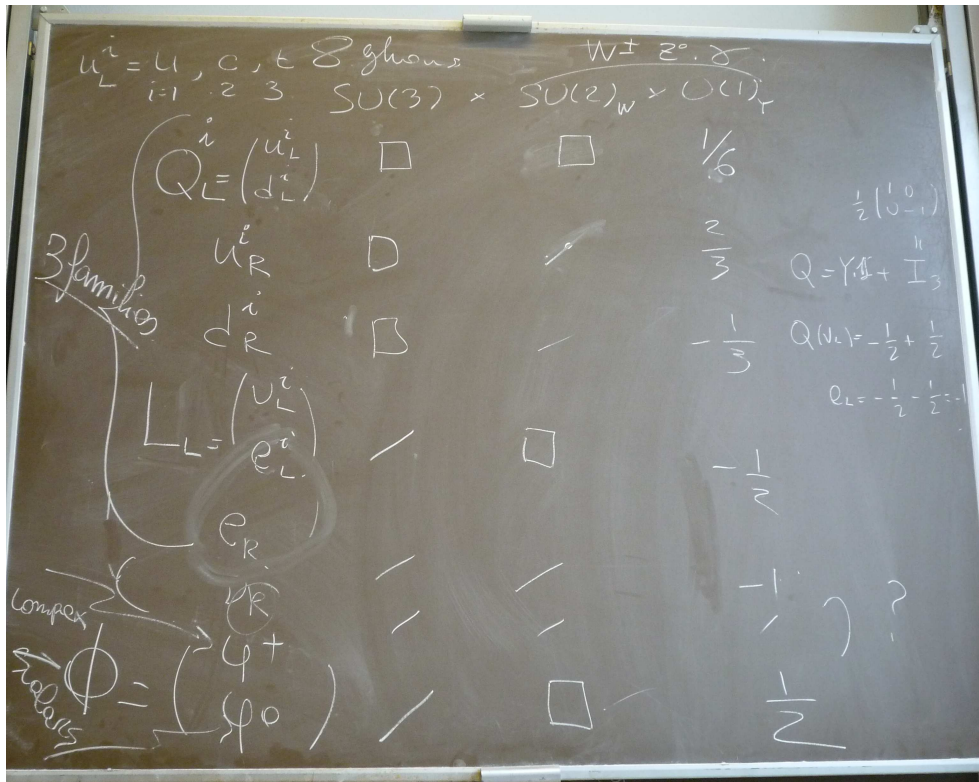 u_L^i = u, c, t 8 gluons W± Z°, γ
i=1 2 3 SU(3) × SU(2)_W × U(1)_Y
Q_L^i = (u_L^i d_L^i) □ □ 1/6
1/2 (1 0 0 -1)
u_R^i □ / 2/3
Q = Y·1 + I_3
3 families
d_R^i □ / -1/3
Q(ν_L) = -1/2 + 1/2
e_L = -1/2 - 1/2 = -1
L_L = (ν_L^i e_L^i) / □ -1/2
e_R / / -1
( ν_R / / / ) ?
complex scalars
Φ = (φ+ φ0) / □ 1/2